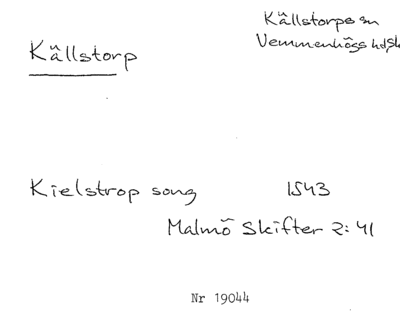 Källstorps sn
Källstorp
Vemmenhögs hd, Sk
Kielstrop song 1543
Malmö Skifter 2: 41
Nr 19044